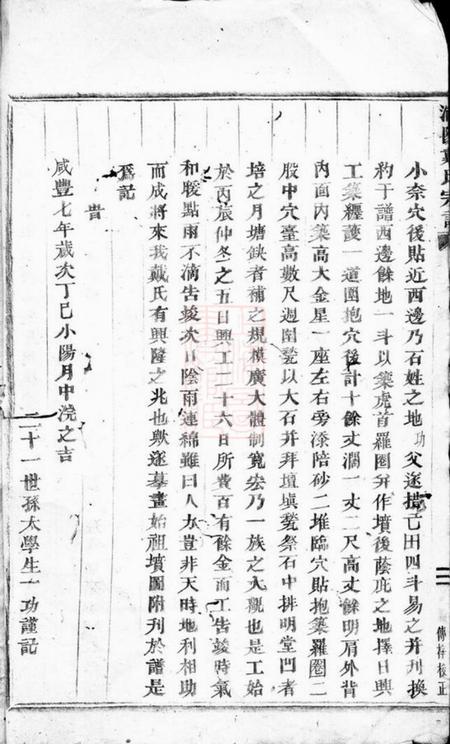 小奈穴後貼近西邊乃石姓之地功父遂撥己田四斗易之并刋換
約于譜西邊餘地一斗以築虎首羅圈弁作墳後蔭庇之地擇日興
工築纏護一道圍抱穴後計十餘丈濶一丈二尺高丈餘明肩外背
內面內築高大金星一座左右旁漆陪砂二堆臨穴貼抱築羅圈二
股中穴臺高數尺週圍甃以大石并拜壇塡甃祭石中排明堂凹者
培之月塘缺者補之規模廣大體制寬宏乃一族之大觀也是工始
於丙辰仲冬之五日興工二十六日所費百有餘金而工告竣時氣
和暖點雨不滴告竣次日陰雨連綿雖曰人力豈非天時地利相助
而成將來我戴氏有興隆之兆也歟遂摹畫始祖墳圖附刋於譜是
爲記
旹
咸豐七年歲次丁巳小陽月中浣之吉
二十一世孫太學生一功謹記
氏宗譜
二
傳梓校正